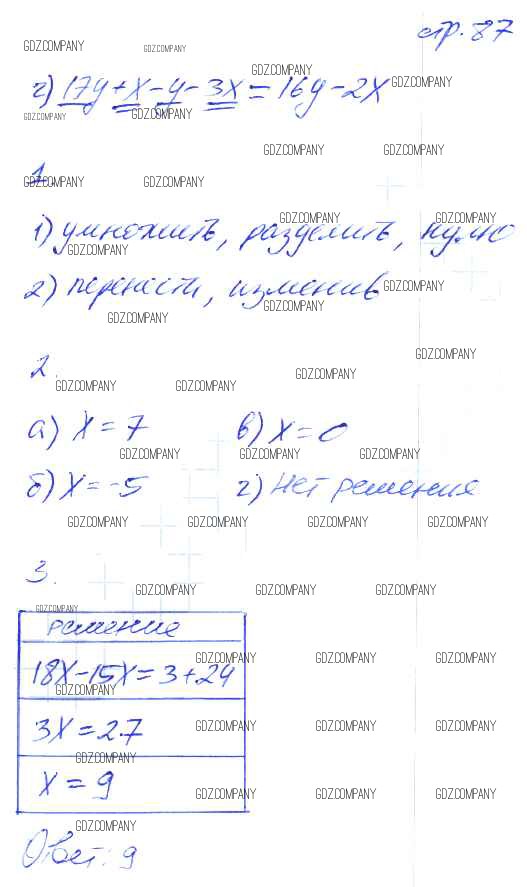 стр. 87
г) 17y + x - y - 3x = 16y - 2x
1.
1) умножить, разделить, нулю
2) перенести, изменив
2.
а) x = 7 в) x = 0
б) x = -5 г) Нет решения
3.
решение
18x - 15x = 3 + 24
3x = 27
x = 9
Ответ: 9
GDZ.COMPANY